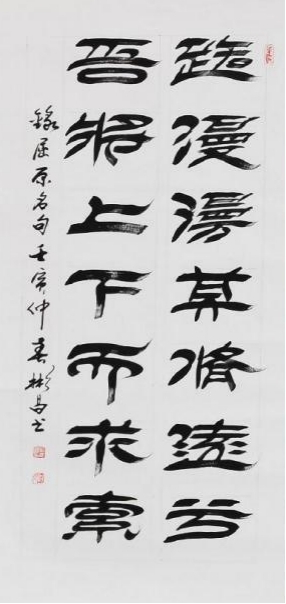 路漫漫其脩遠兮
吾將上下而求索
錄屈原名句壬寅仲春彬昌书